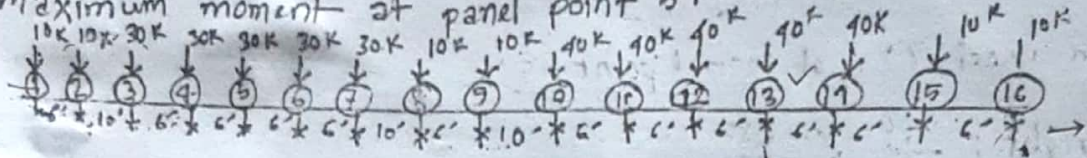 Maximum moment at panel point
10K 10K 30K 30K 30K 30K 30K 10K 10K 40K 40K 40K 40K 40K 10K 10K
1 2 3 4 5 6 7 8 9 10 11 12 13 14 15 16
6' 10' 6' 6' 6' 6' 10' 6' 10' 6' 6' 6' 6' 6' 6'